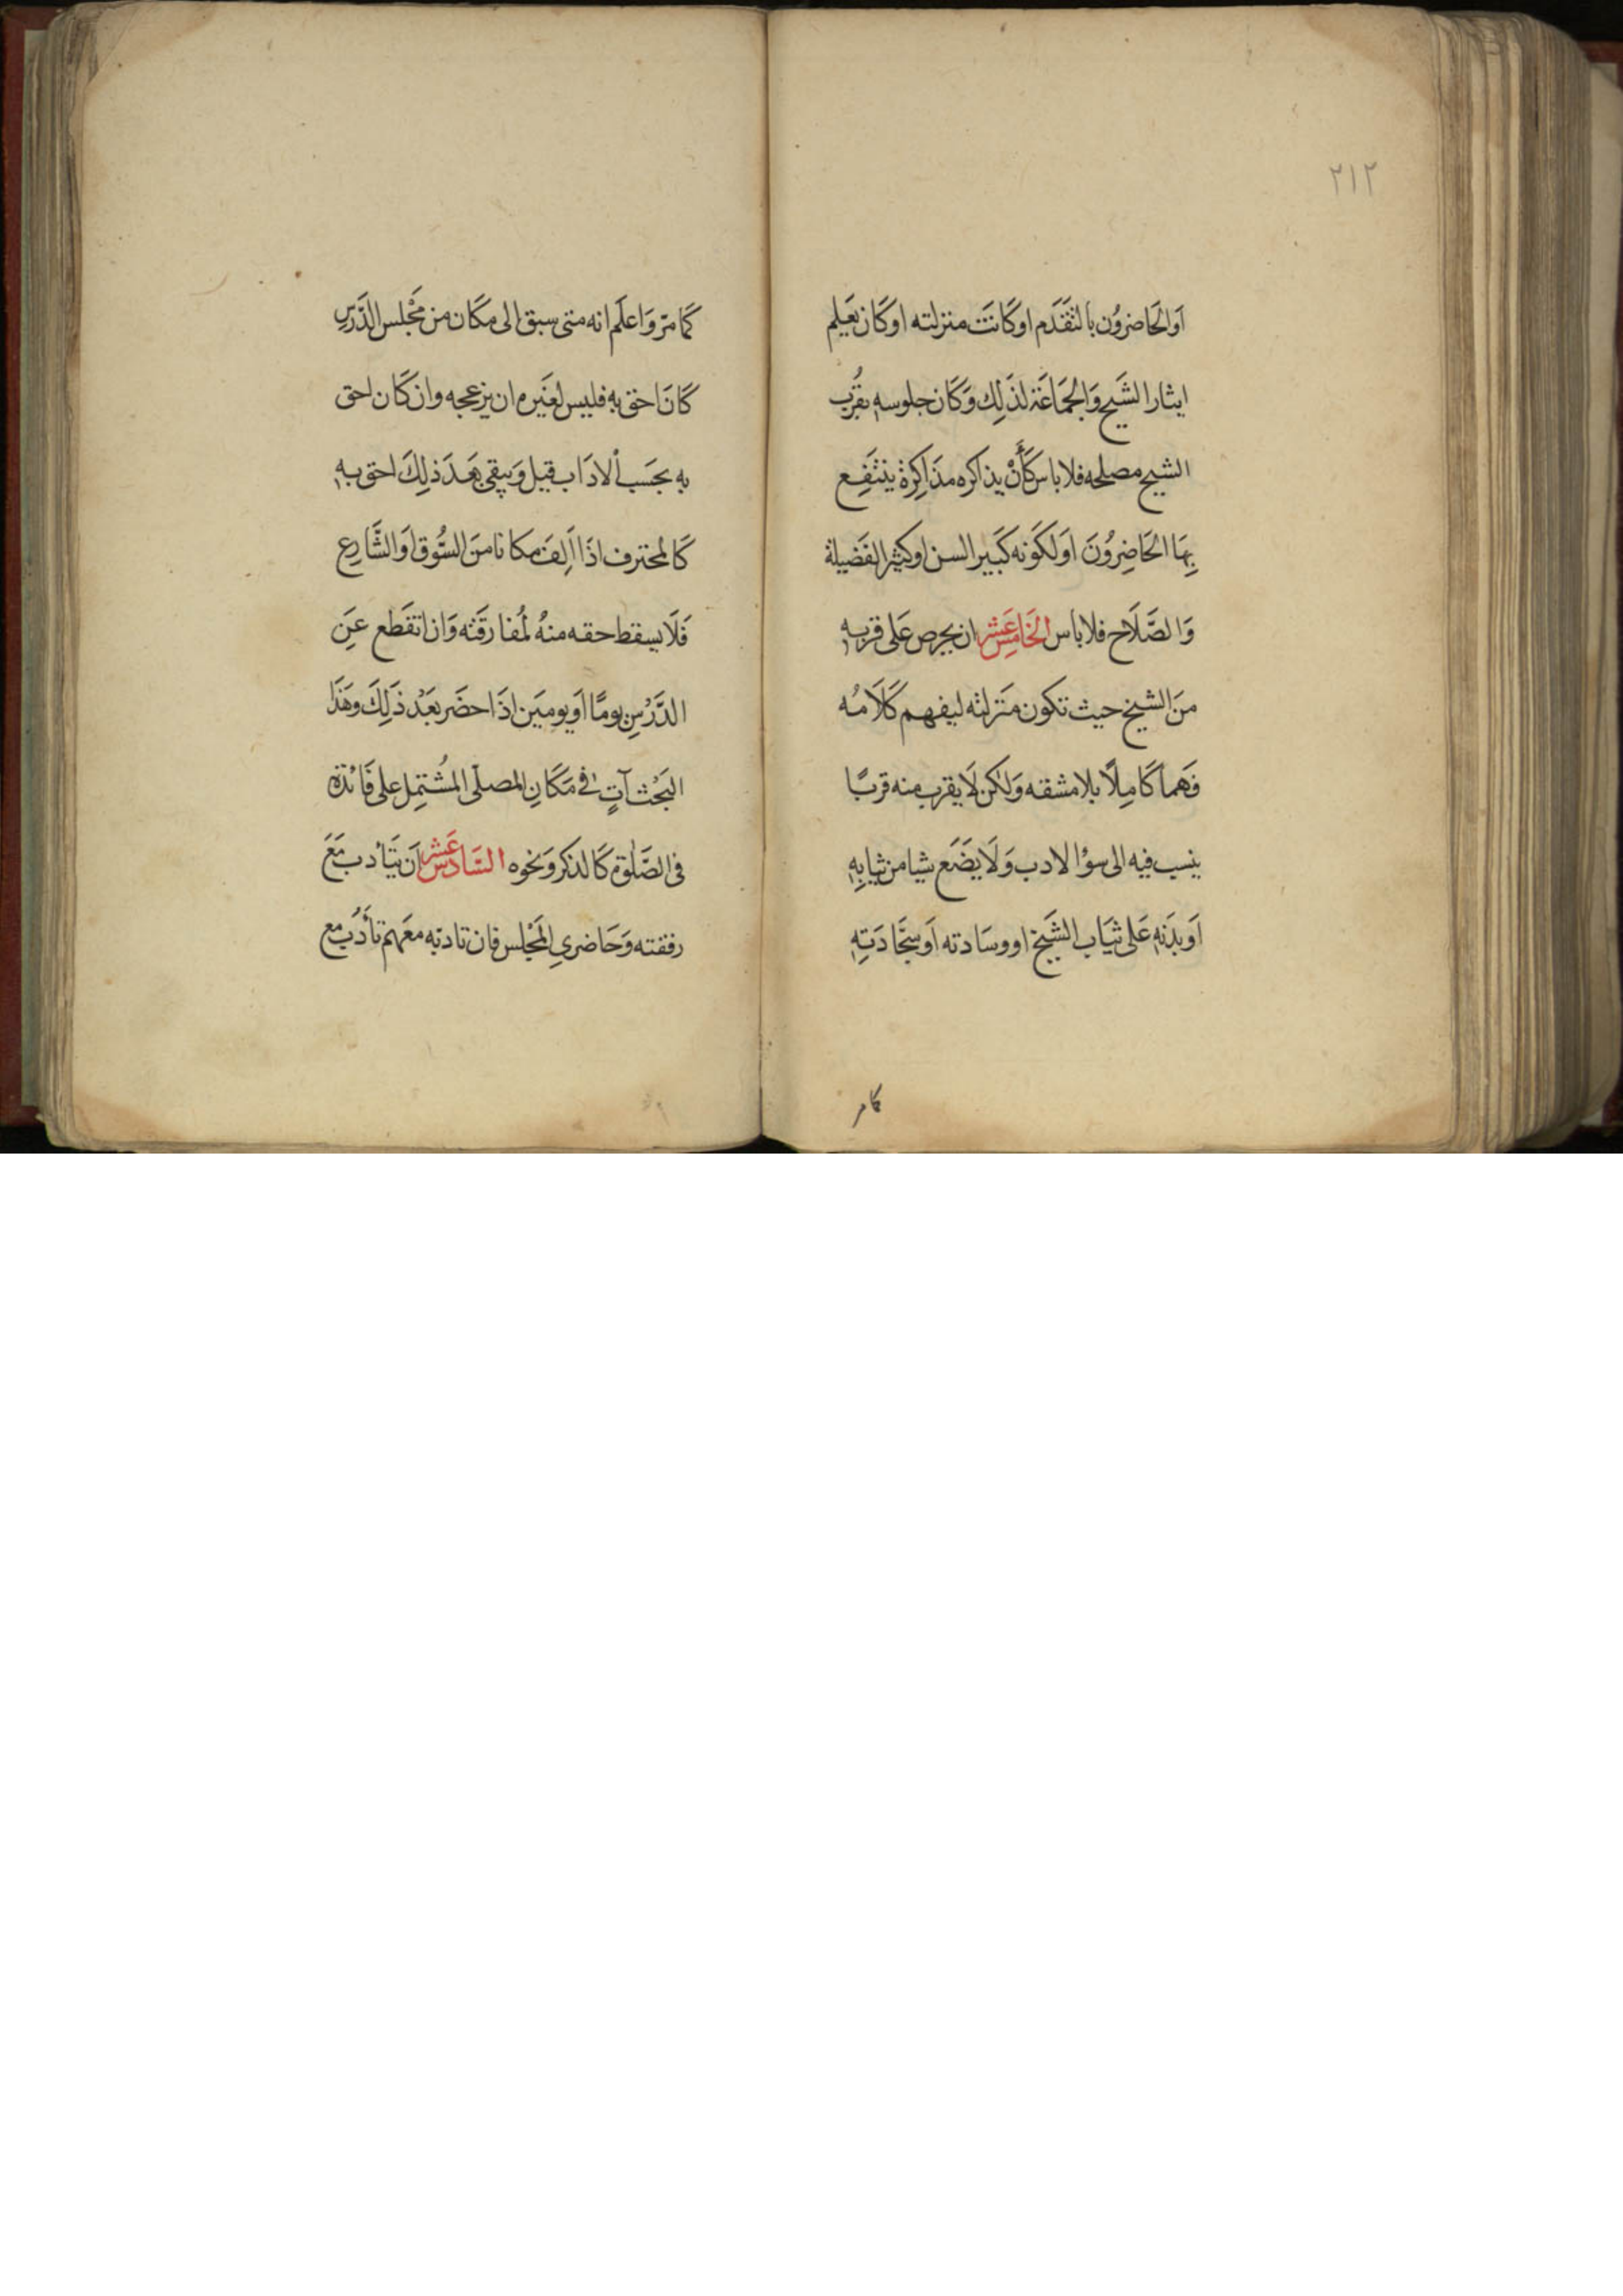 ٢١٢
اَوالحَاضرُون بالتقَدَم اوكَانَت منزلته اوكَان يَعَلم
ايثار الشَيخ وَالجمَاعَة لذَلِك وَكَان جلوسه بقُرب
الشيخ مصلحه فلا باس كَأَنْ يذاكره مذَاكِرة ينتَفِع
بِهَا الحَاضِرُونَ اوَلكَونه كَبَير السن اوكثير الفَضيلة
وَالصَّلَاح فلا باس الخَامِسَ عَشر ان يحرص عَلى قربه
منَ الشيخ حيث تكون مَنزلته ليفهم كَلَامُه
فَهماً كَامِلًا بلا مشقه وَلكن لَا يقرب منه قربًا
ينسب فيه الى سؤ الادب وَلَا يضَع شيا من ثيابِهِ
اَوبدَنهِ عَلى ثيَاب الشَيخ اووسَادته اَوسجَّادَتِهِ
كامر
كَمَا مرّ وَاعلَم انه متى سبق الى مكَان من مَجْلس الدَّرسِ
كَانَ احق بهِ فليس لغَيره ان يزعجه وان كَان احق
بهِ بحَسَب الادَاب قيل وَيبقى بَعَد ذلِكَ احق بهِ
كَالمحترف اذَا اَلِفَ مكانا منَ السُّوق اوَالشَّارعِ
فَلَا يسقط حقه منهُ لمُفارقَته وَان انقَطع عَنِ
الدَّرْسِ يومًا اَويومَين اذَا حضَر بَعْد ذَلِكَ وهَذَا
البَحْث آتٍ فى مَكَانِ المصلّى المُشتِمل على فَائدة
فى الصَّلوة كَالذكر وَنحوه السَّادسَ عَشر اَن يتَأدب مَعَ
رفقته وَحَاضرىِ المَجْلس فان تادبّه معَهم تأَدُب مع